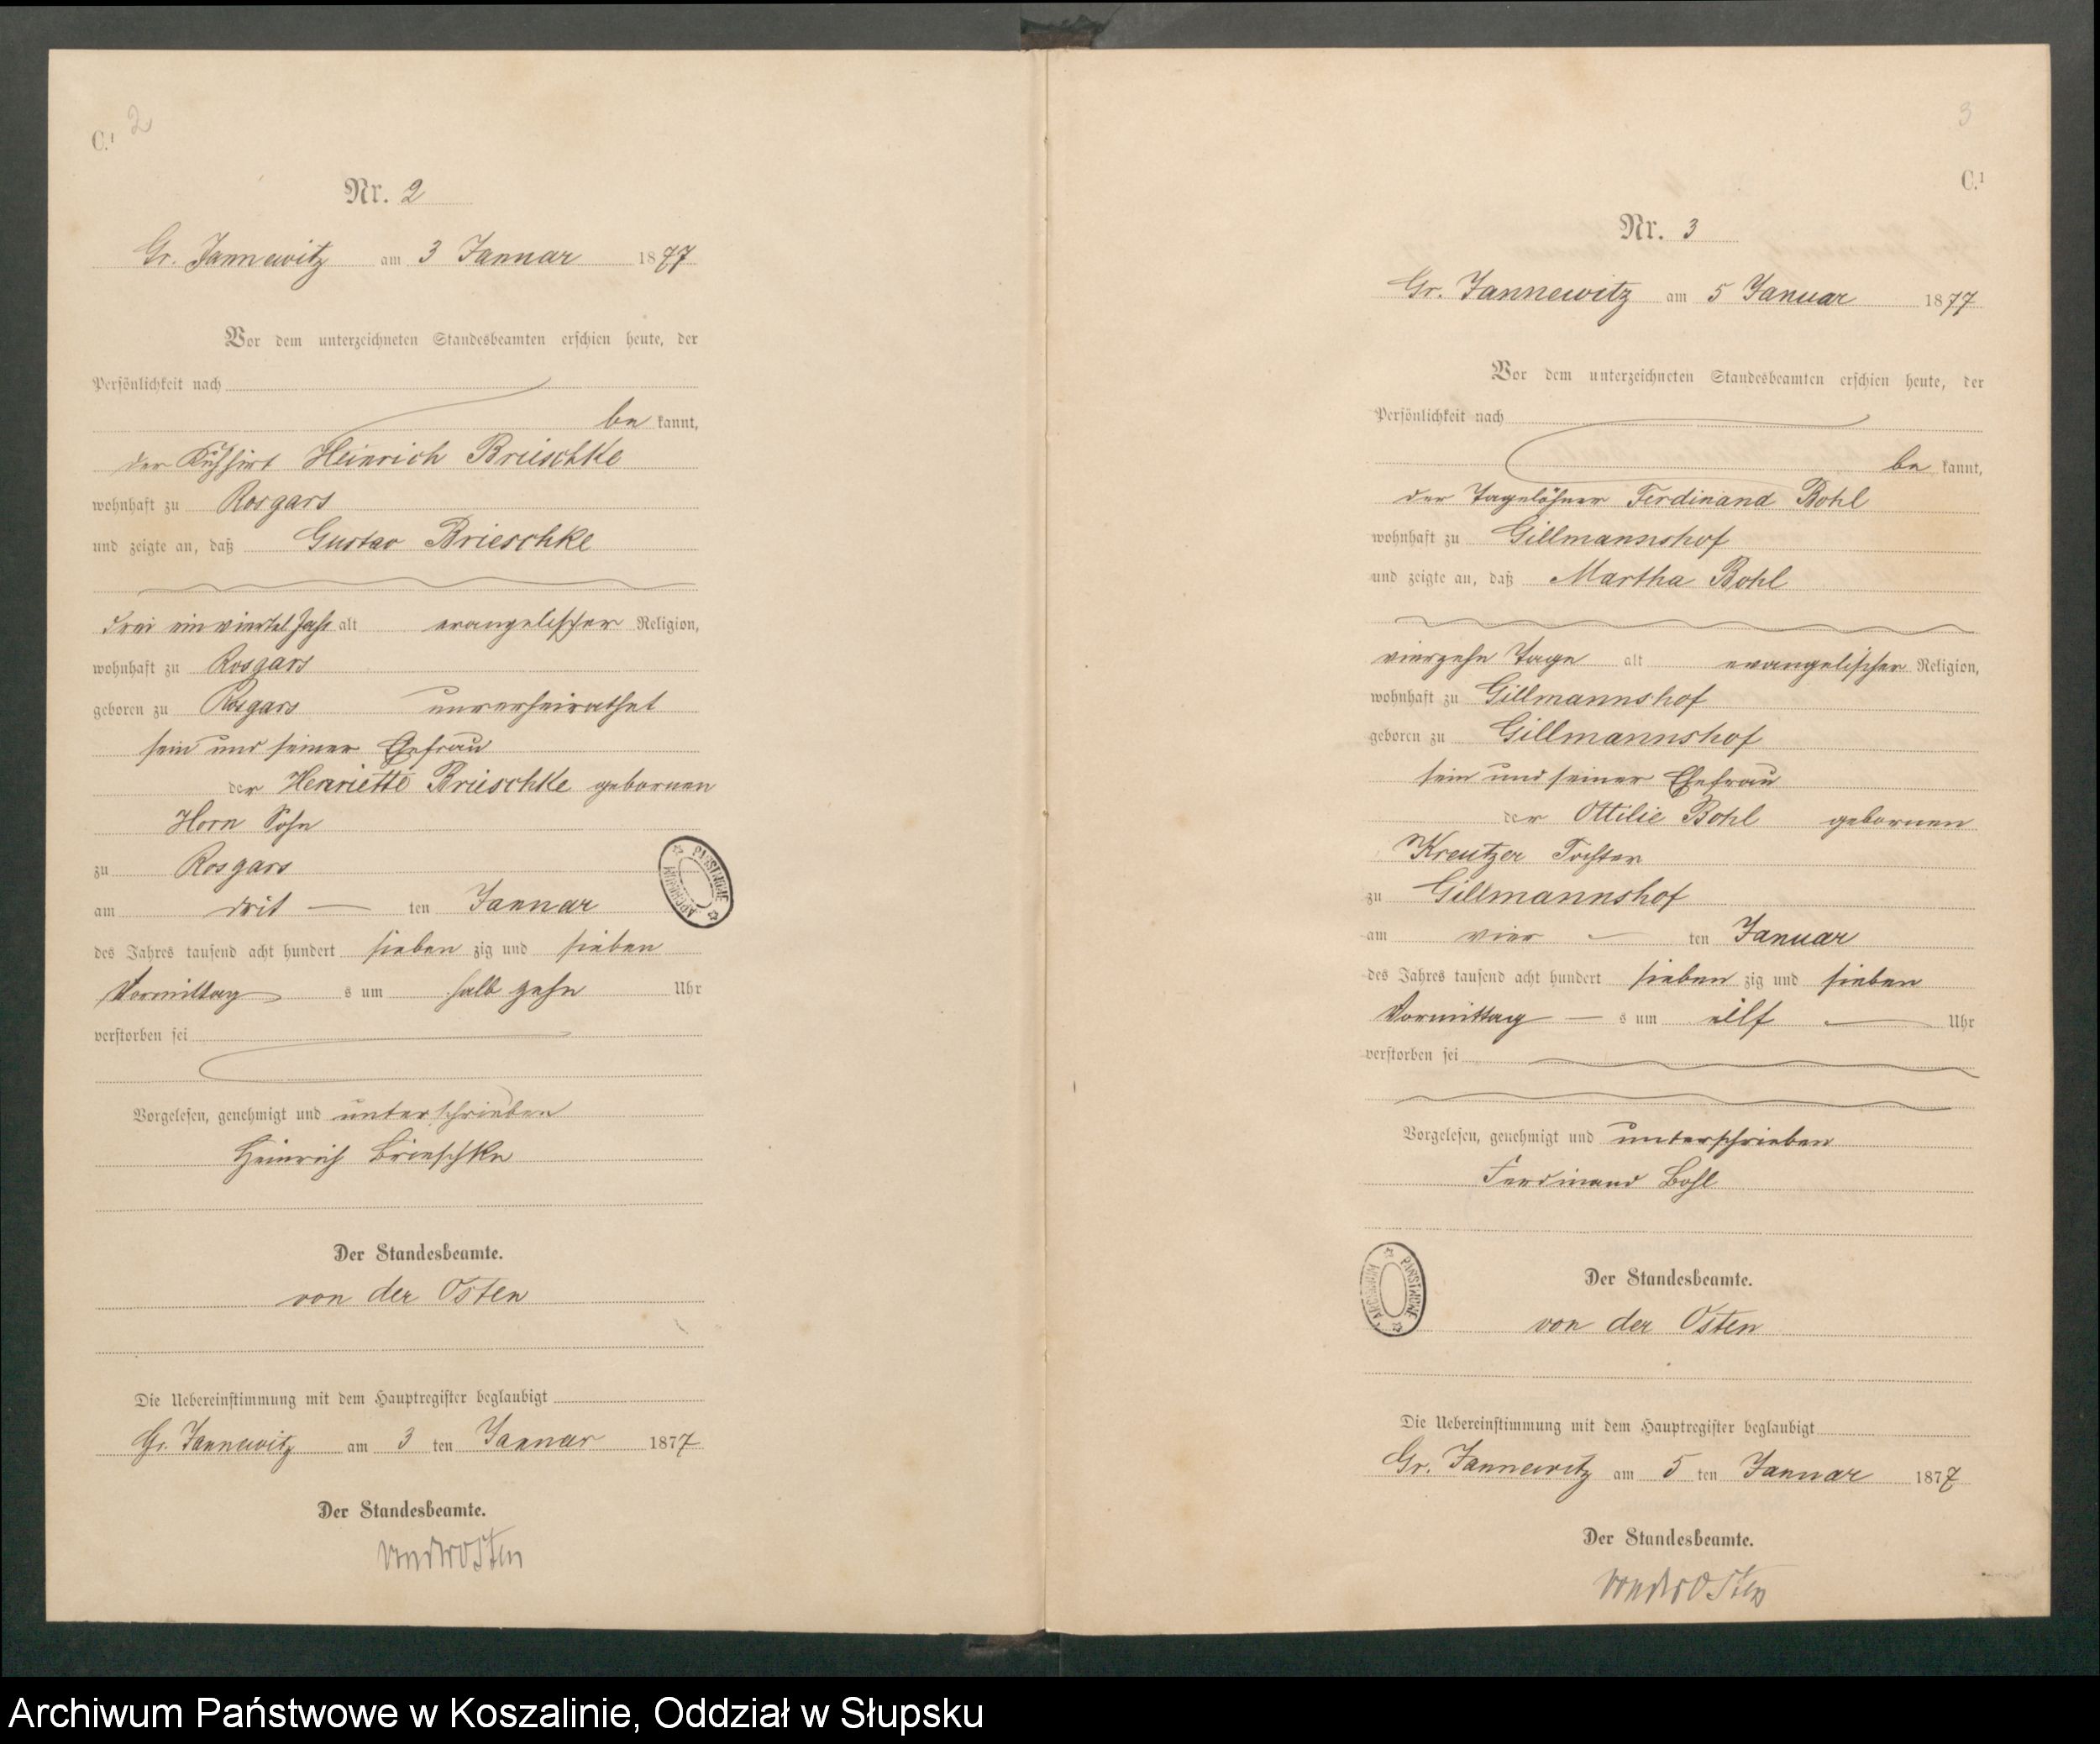 2
C.¹
Nr. 2
Gr. Jannewitz am 3 Januar 1877
Vor dem unterzeichneten Standesbeamten erschien heute, der
Persönlichkeit nach
be kannt,
der Kuhhirt Heinrich Brieschke
wohnhaft zu Rosgars
und zeigte an, daß Gustav Brieschke
drei ein viertel Jahr alt evangelischer Religion,
wohnhaft zu Rosgars
geboren zu Rosgars unverheirathet
sein und seiner Ehefrau
der Henriette Brieschke gebornen
Horn Sohn
zu Rosgars
am drit ten Januar
des Jahres tausend acht hundert sieben zig und sieben
Vormittag s um halb zehn Uhr
verstorben sei
Vorgelesen, genehmigt und unterschrieben
Heinrich Brieschke
Der Standesbeamte.
von der Osten
Die Uebereinstimmung mit dem Hauptregister beglaubigt
Gr. Jannewitz am 3 ten Januar 1877
Der Standesbeamte.
vonderOsten
ARCHIWUM PAŃSTWOWE
3
C.¹
Nr. 3
Gr. Jannewitz am 5 Januar 1877
Vor dem unterzeichneten Standesbeamten erschien heute, der
Persönlichkeit nach
be kannt,
der Tagelöhner Ferdinand Bohl
wohnhaft zu Gillmannshof
und zeigte an, daß Martha Bohl
vierzehn Tage alt evangelischer Religion,
wohnhaft zu Gillmannshof
geboren zu Gillmannshof
sein und seiner Ehefrau
der Ottilie Bohl gebornen
Kreutzer Tochter
zu Gillmannshof
am vier ten Januar
des Jahres tausend acht hundert sieben zig und sieben
Vormittag s um eilf Uhr
verstorben sei
Vorgelesen, genehmigt und unterschrieben
Ferdinand Bohl
ARCHIWUM PAŃSTWOWE
Der Standesbeamte.
von der Osten
Die Uebereinstimmung mit dem Hauptregister beglaubigt
Gr. Jannewitz am 5 ten Januar 1877
Der Standesbeamte.
vonderOsten
Archiwum Państwowe w Koszalinie, Oddział w Słupsku